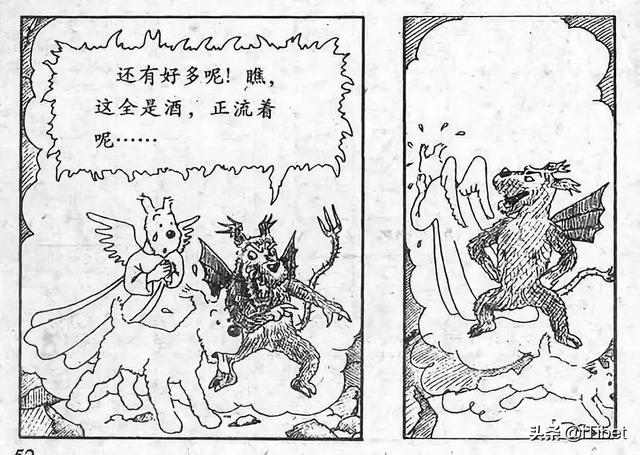 还有好多呢！瞧，
这全是酒，正流着
呢……
52
头条 @iTibet